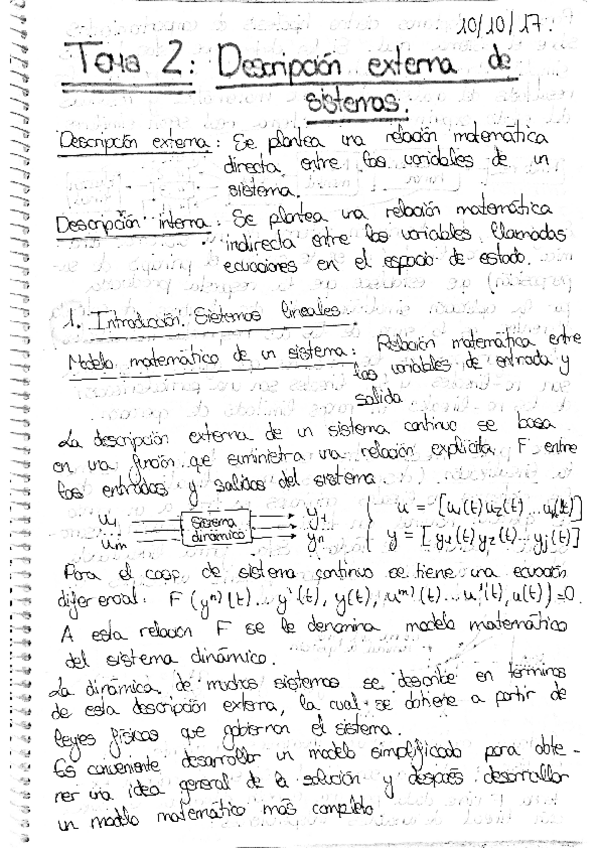 10/10/17.
Tema 2: Descripción externa de
sistemas.
Descripción externa: Se plantea una relación matemática
directa entre las variables de un
sistema.
Descripción interna: Se plantea una relación matemática
indirecta entre las variables llamadas
ecuaciones en el espacio de estado.
1. Introducción. Sistemas lineales
Modelo matemático de un sistema: Relación matemática entre
las variables de entrada y
salida
La descripción externa de un sistema continuo se basa
en una función que suministra una relación explícita F entre
las entradas y salidas del sistema
u₁ Sistema y₁ u = [u₁(t) u₂(t)...
um dinámico yn y = [y₁(t) y₂(t)... yj(t)]
Para el caso de sistema continuo se tiene una ecuación
diferencial: F(yⁿ⁾(t)...y'(t), y(t), uᵐ⁾(t)...u'(t), u(t))=0.
A esta relación F se le denomina modelo matemático
del sistema dinámico.
La dinámica de muchos sistemas se describe en términos
de esta descripción externa, la cual se obtiene a partir de
leyes físicas que gobiernan el sistema.
Es conveniente desarrollar un modelo simplificado para obte-
ner una idea general de la solución y después desarrollar
un modelo matemático más completo.